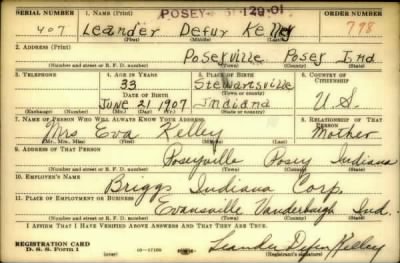 SERIAL NUMBER 1. NAME (Print) POSEY 129-01 ORDER NUMBER
407 Leander Defur Kelley 798
(First) (Middle) (Last)
2. ADDRESS (Print)
Poseyville Posey Ind
(Number and street or R. F. D. number) (Town) (County) (State)
3. TELEPHONE 4. AGE IN YEARS 5. PLACE OF BIRTH 6. COUNTRY OF CITIZENSHIP
33 Stewartsville
DATE OF BIRTH (Town or county)
June 21 1907 Indiana U.S.
(Exchange) (Number) (Mo.) (Day) (Yr.) (State or country)
7. NAME OF PERSON WHO WILL ALWAYS KNOW YOUR ADDRESS 8. RELATIONSHIP OF THAT PERSON
Mrs Eva Kelley Mother
(Mr., Mrs., Miss) (First) (Middle) (Last)
9. ADDRESS OF THAT PERSON
Poseyville Posey Indiana
(Number and street or R. F. D. number) (Town) (County) (State)
10. EMPLOYER'S NAME
Briggs Indiana Corp.
11. PLACE OF EMPLOYMENT OR BUSINESS
Evansville Vanderburgh Ind.
(Number and street or R. F. D. number) (Town) (County) (State)
I AFFIRM THAT I HAVE VERIFIED ABOVE ANSWERS AND THAT THEY ARE TRUE.
REGISTRATION CARD
D. S. S. Form 1 (over) 16-17105 Leander Defur Kelley
(Registrant's signature)